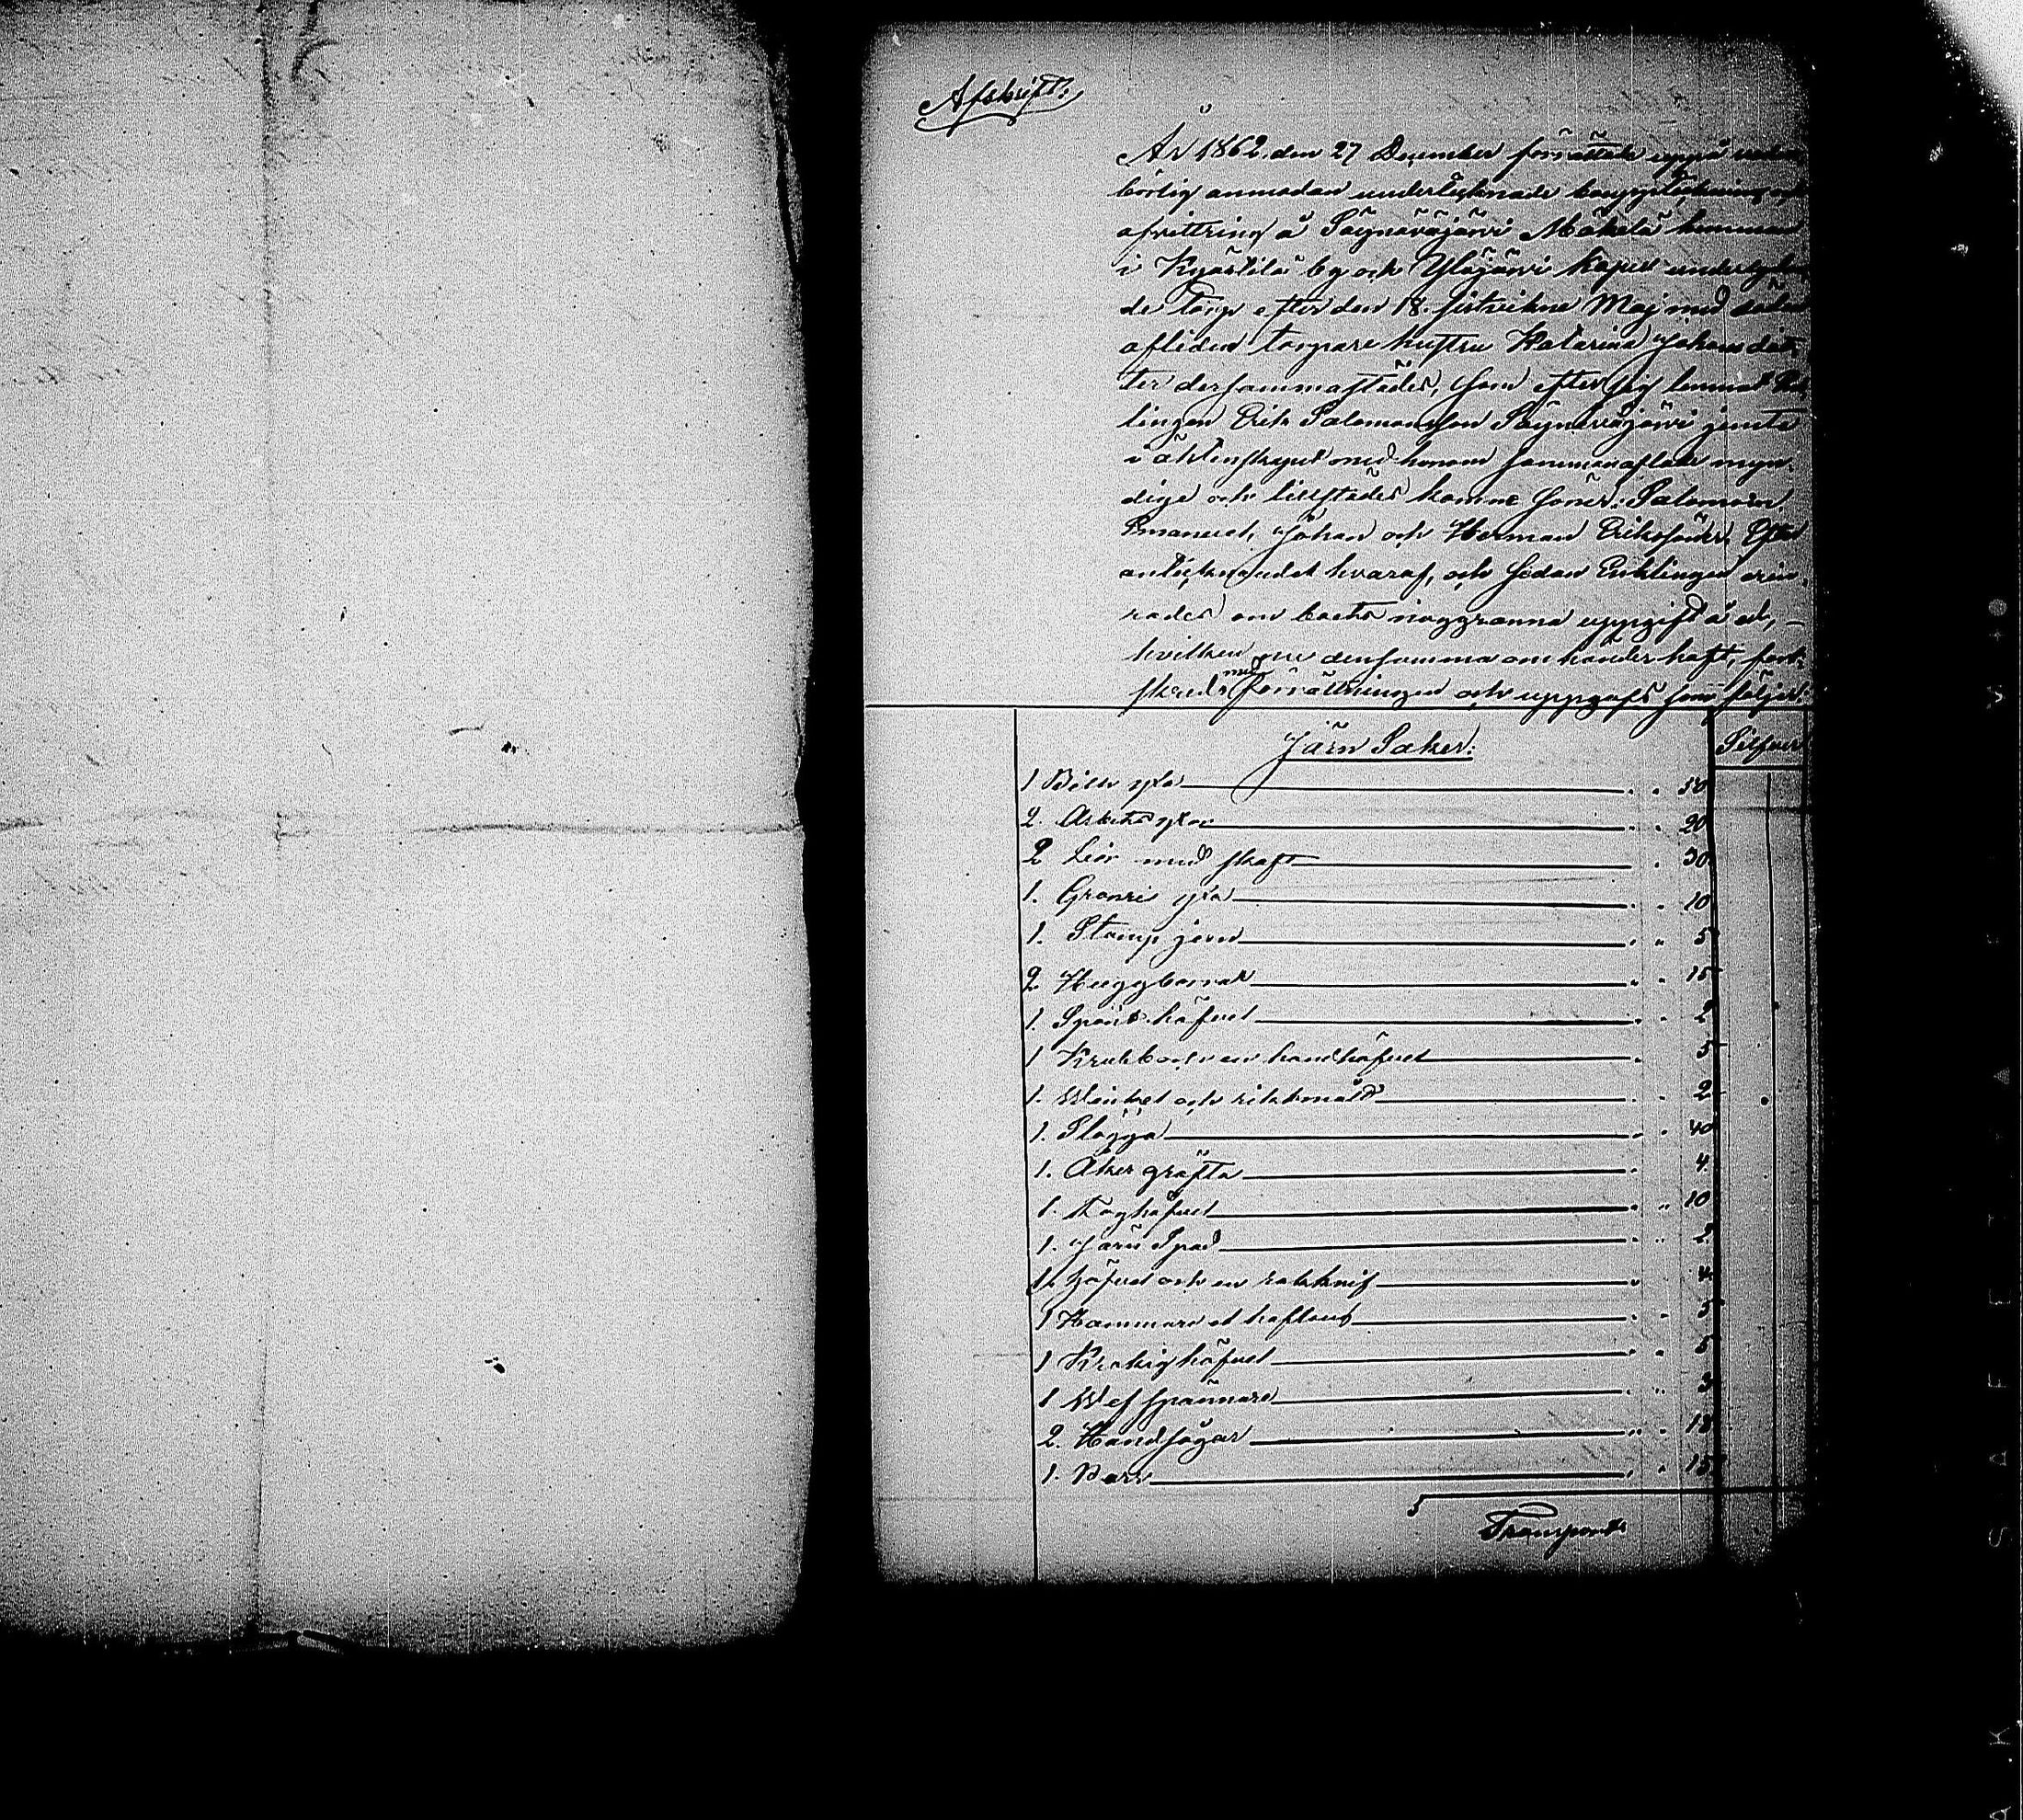 Afskrift:
År 1862 den 27 December förrättade uppå
börlig anmodan undertecknade bouppteckning och
afvittring å Säynäväjärvi Mäkelä hemman
i Kyöstilä by och Ylöjärvi kapell underlydan
de Torp efter den 18. sistvikne Maj med döden
afliden torpare hustru Katarina Johans dot-
ter dersammastädes, som efter sig lemnat Enk-
lingen Erik Salomonsson Säynäväjärvi jemte
i äktenskapet med honom sammanaflade myn-
dige och tillstädes komne söner: Salomon
Emanuel, Johan och Herman Erikssöner. Efter
antecknandet hvaraf, och sedan Enklingen erin-
rades om boets noggranna uppgift å ed,
hvilken nu densamma om händer haft, fort-
skreds med förrättningen och uppgafs som följer:
Järn Saker: Silfver
1 Bila yxa " " 50
2. Arbets yxor " " 20
2 Liar med skaft " 30
1. Granris yxa " " 10
1. Stamp jern " " 5
2 Huggbarrar " " 15
1. Spånt höfvel " " 2
1 Krubb och en handhöfvel " 5
1. Winkel och rikkmått " " 2
1. Slägga " " 40
1. Åker gräfta " 4
1. Foghöfvel " " 10
1. Järn Spad " " 2
1. Höfvel och en rakknif " 4
1 Hammare et hoftång " " 5
1 Krokig höfvel " " 5
1 Wef spännare " " 3
2. Handsågar " " 18
1. Barr " " 15
Transport